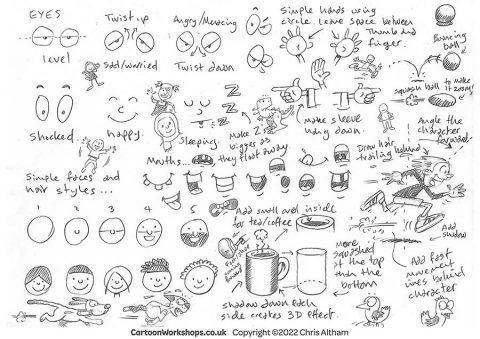 EYES
Twist up
Angry/Menacing
Simple hands using
circle. Leave space between
Thumb and
finger.
Bouncing
ball
level
Sad/worried
Twist down
squash ball to make
it zoom!
Shocked.
happy.
Sleeping.
Make Z
bigger as
they float away
Make sleeve
hang down.
Angle the
character
forward
Mouths...
Draw hair
trailing behind
Simple faces and
hair styles...
1 2 3 4 5
Add small oval inside
for tea/coffee
More
squashed
at the top
than the
bottom
Add
shadow
Add fast
movement
lines behind
character
shadow down each
side creates 3D effect.
CartoonWorkshops.co.uk Copyright©2022 Chris Altham